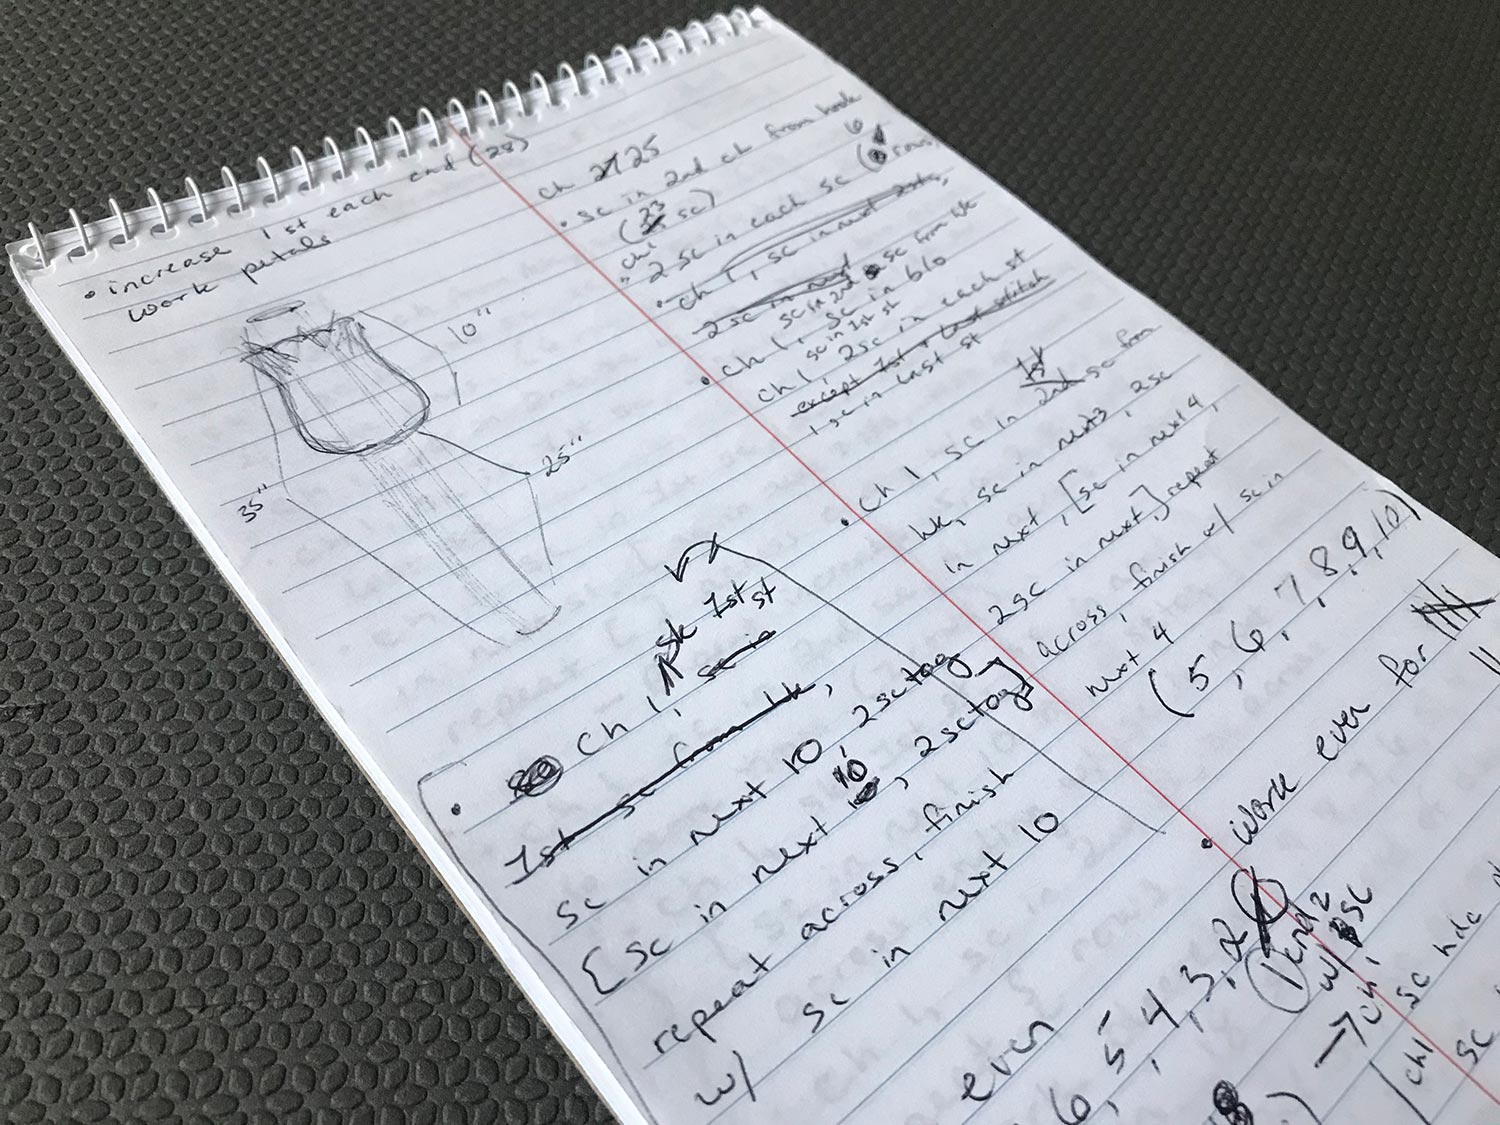 • increase 1st each end (28)
work petals
10"
25"
35"
ch 25
• sc in 2nd ch from hook
(23 sc)
ch 1
2 sc in each sc (6 rows)
• ch 1, sc in next 2 sts,
2 sc in next
sc in 2nd sc from hk
• ch 1, sc in blo
sc in 1st st
ch 1, 2sc in each st
except 1st + last stitch
1 sc in last st
• ch 1, sc in 1st 2nd sc from
hk, sc in next 3, 2sc
in next, [sc in next 4,
2sc in next,] repeat
across, finish w/ sc in
next 4
(5, 6, 7, 8, 9, 10)
• work even for
11
• ch 1, sk 1st st
sc in
1st sc from hk,
sc in next 10, 2sctog
[sc in next 10, 2sctog]
repeat across, finish
w/ sc in next 10
even
6, 5, 4, 3, 2
1 end 2
w/ sc
→ ch 1
sc hdc
ch1
sc